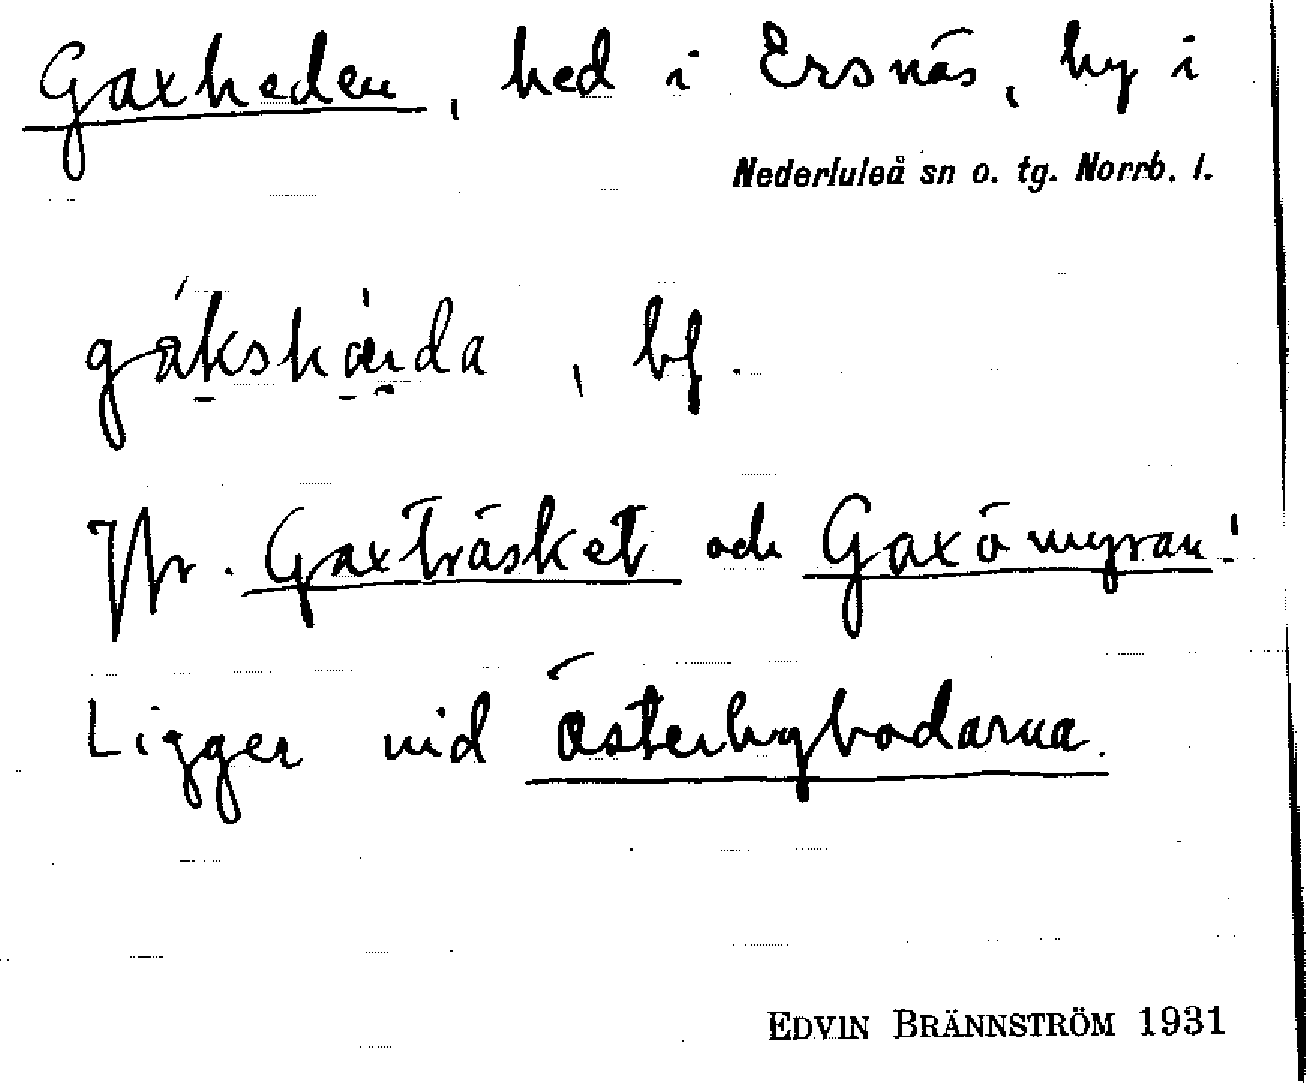 Gaxheden, hed i Ersnäs, by i
Nederluleå sn o. tg. Norrb. l.
gákshæ̀ida, bf.
Jfr. Gaxträsket och Gaxömyran!
Ligger vid Österbybodarna.
EDVIN BRÄNNSTRÖM 1931